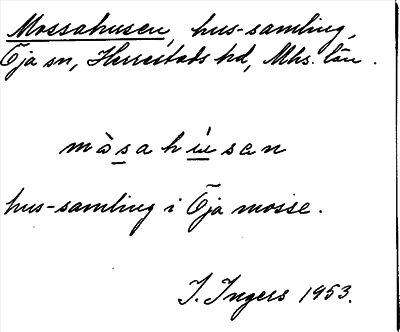 Mossahusen, hus-samling,
Öja sn, Herrestads hd, Mhs. län.
màsahúsen
hus-samling i Öja mosse.
I. Ingers 1953.